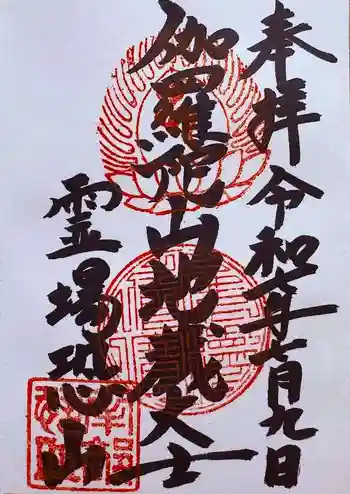 奉拝 令和六年七月九日
伽羅陀山地蔵大士
霊場恐山